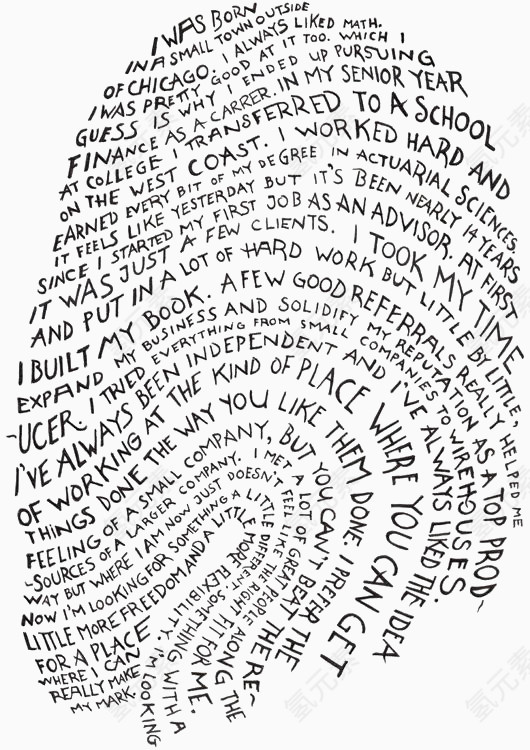 I WAS BORN
IN A SMALL TOWN OUTSIDE
OF CHICAGO. I ALWAYS LIKED MATH.
I WAS PRETTY GOOD AT IT TOO. WHICH I
GUESS IS WHY I ENDED UP PURSUING
FINANCE AS A CARRER. IN MY SENIOR YEAR
AT COLLEGE I TRANSFERRED TO A SCHOOL
ON THE WEST COAST. I WORKED HARD AND
EARNED EVERY BIT OF MY DEGREE IN ACTUARIAL SCIENCES.
IT FEELS LIKE YESTERDAY BUT IT'S BEEN NEARLY 14 YEARS
SINCE I STARTED MY FIRST JOB AS AN ADVISOR. AT FIRST
IT WAS JUST A FEW CLIENTS. I TOOK MY TIME
AND PUT IN A LOT OF HARD WORK BUT LITTLE BY LITTLE,
I BUILT MY BOOK. A FEW GOOD REFERRALS REALLY HELPED ME
EXPAND MY BUSINESS AND SOLIDIFY MY REPUTATION AS A TOP PROD-
-UCER. I TRIED EVERYTHING FROM SMALL COMPANIES TO WIREHOUSES.
I'VE ALWAYS BEEN INDEPENDENT AND I'VE ALWAYS LIKED THE IDEA
OF WORKING AT THE KIND OF PLACE WHERE YOU CAN GET
THINGS DONE THE WAY YOU LIKE THEM DONE. I PREFER THE
FEELING OF A SMALL COMPANY, BUT YOU CAN'T BEAT THE RE-
-SOURCES OF A LARGER COMPANY. I MET A LOT OF GREAT PEOPLE ALONG THE
WAY BUT WHERE I AM NOW JUST DOESN'T FEEL LIKE THE RIGHT FIT FOR ME.
NOW I'M LOOKING FOR SOMETHING A LITTLE DIFFERENT. SOMETHING WITH A
LITTLE MORE FREEDOM AND A LITTLE MORE FLEXIBILITY. I'M LOOKING
FOR A PLACE
WHERE I CAN
REALLY MAKE
MY MARK.
氢元素